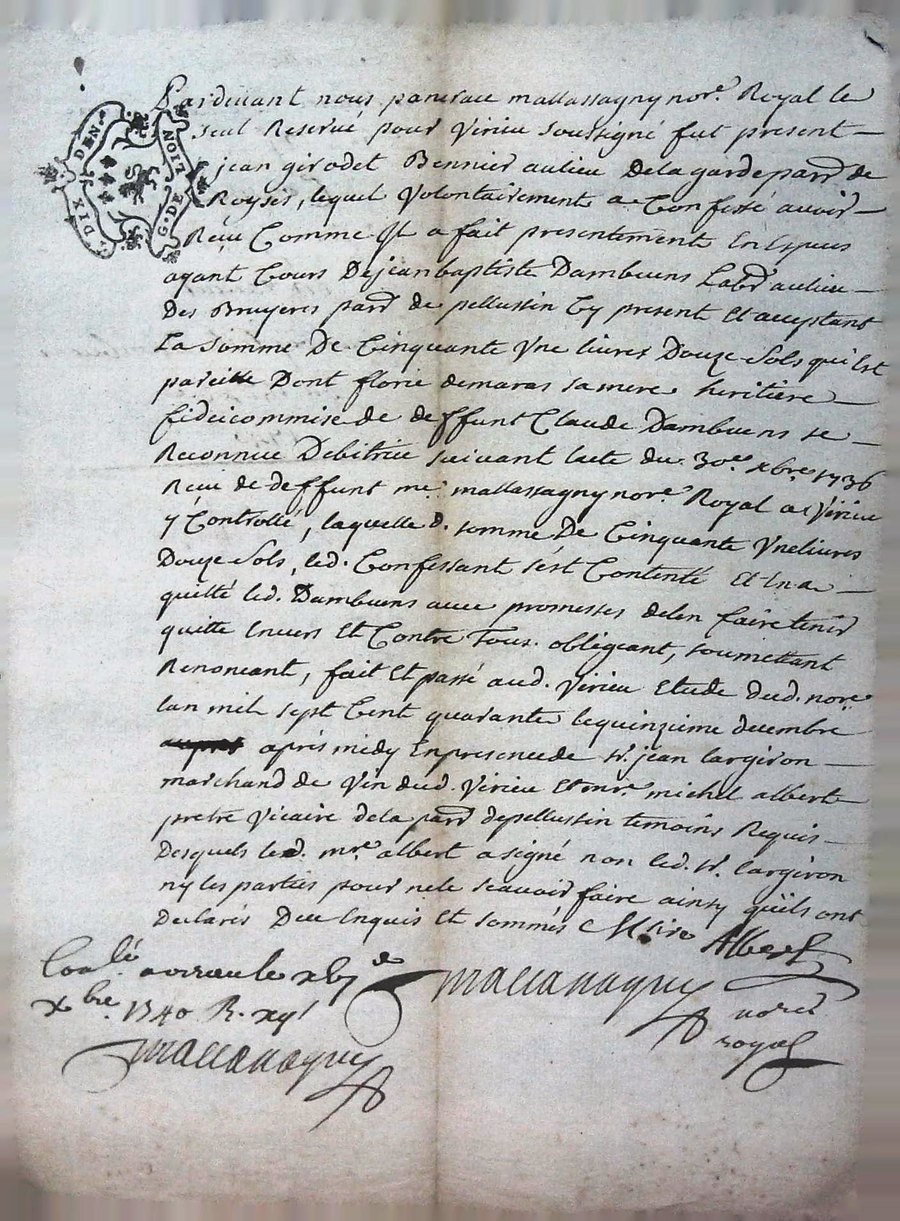 G. DE
NOIT
DEN
DIX
S.
Pardevant nous pancrace mallassagny nore. Royal le
seul Reservé pour Virieu soussigné fut present
jean girodet Bennier au lieu de la garde parr de
Roysey, lequel Volontairement a Confessé avoir
Reçu Comme Il a fait presentement En Espèces
ayant Cours De jean baptiste Dambuens Labr au lieu
Des Bruyeres parr de pellussin Cy present Et acceptant
La somme De Cinquante Une livres Douze Sols qui Est
pareille Dont florie demaras sa mere heritiere
fideicommise de deffunt Claude Dambuens se
Reconnue Debitrice suivant lacte du 30e. xbre. 1736
Reçu de deffunt me. mallassagny nore. Royal a Virieu
y Controllé, laquelle d. somme De Cinquante Une livres
Douze Sols, led. Confessant s'est Contenté Et En a
quitté led. Dambuens avec promesses de len faire tenir
quitte Envers Et Contre Tous. obligeant, soumettant
Renoncant, fait Et passé aud. Virieu Etude dud. nore.
lan mil sept Cent quarante le quinzieme decembre
après midy En presence de sr. jean largiron
marchand de Vin dud. Virieu Et mre. michel albert
pretre Vicaire de la parr de pellussin temoins Requis
Desquels led. mre. albert a signé non led. sr. largiron
ny les parties pour ne le scavoir faire ainsy quils ont
Declarés Deue Enquis Et sommés
Albert
Conlé a virieu le
xbre 1740 R.
Mallassagny
Mallassagny
nore
royal